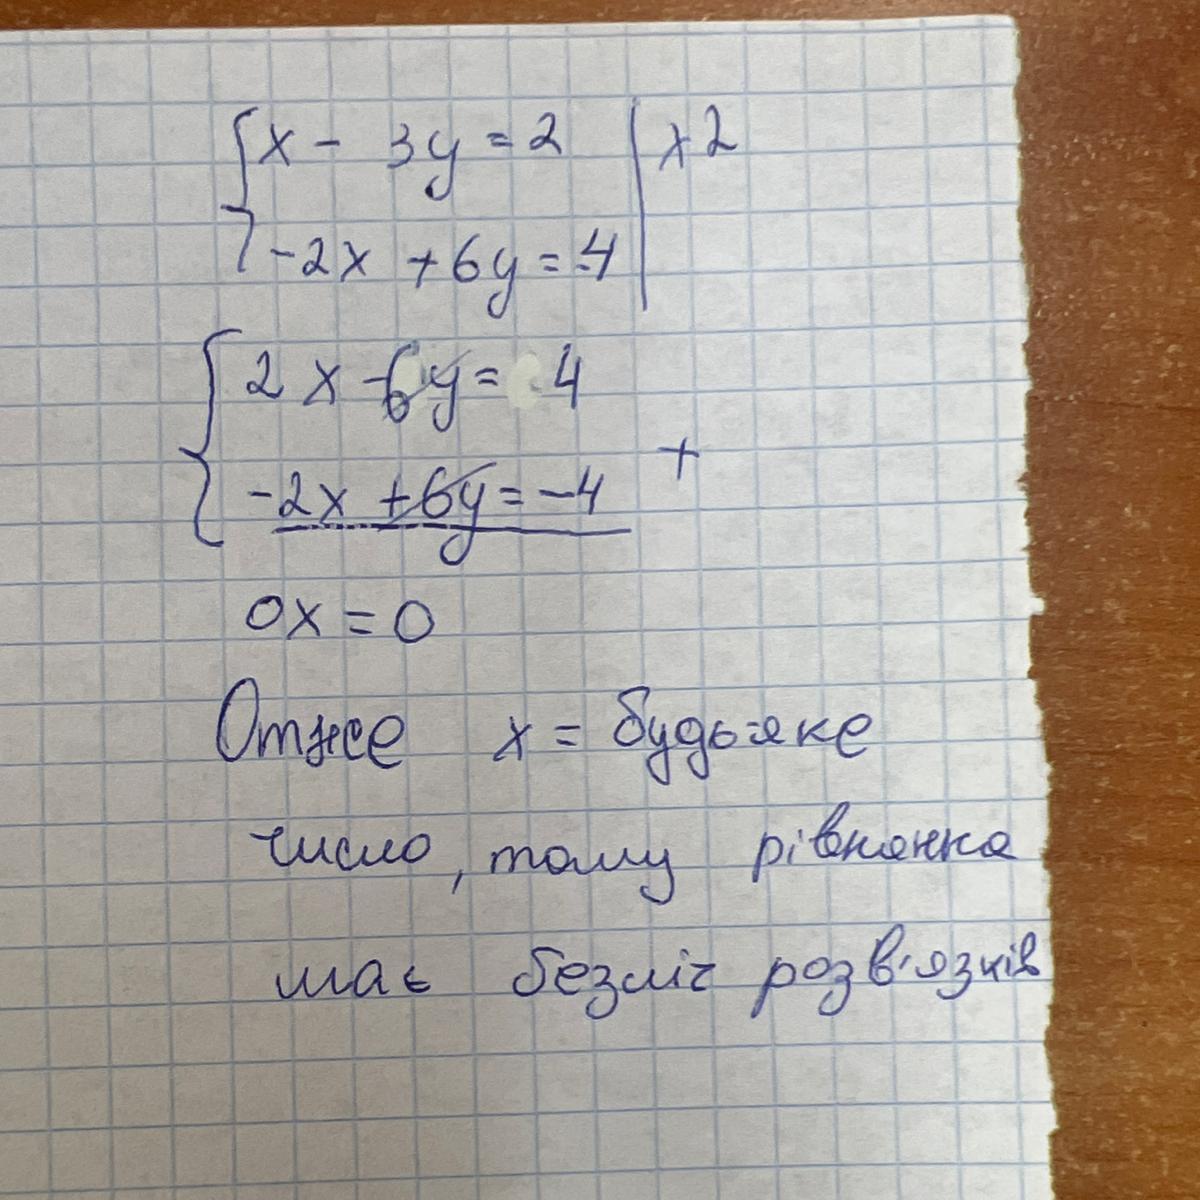 x - 3y = 2 | x2
-2x + 6y = -4
2x - 6y = 4
-2x + 6y = -4 +
0x = 0
Отже x = будь-яке
число, тому рівняння
має безліч розв'язків